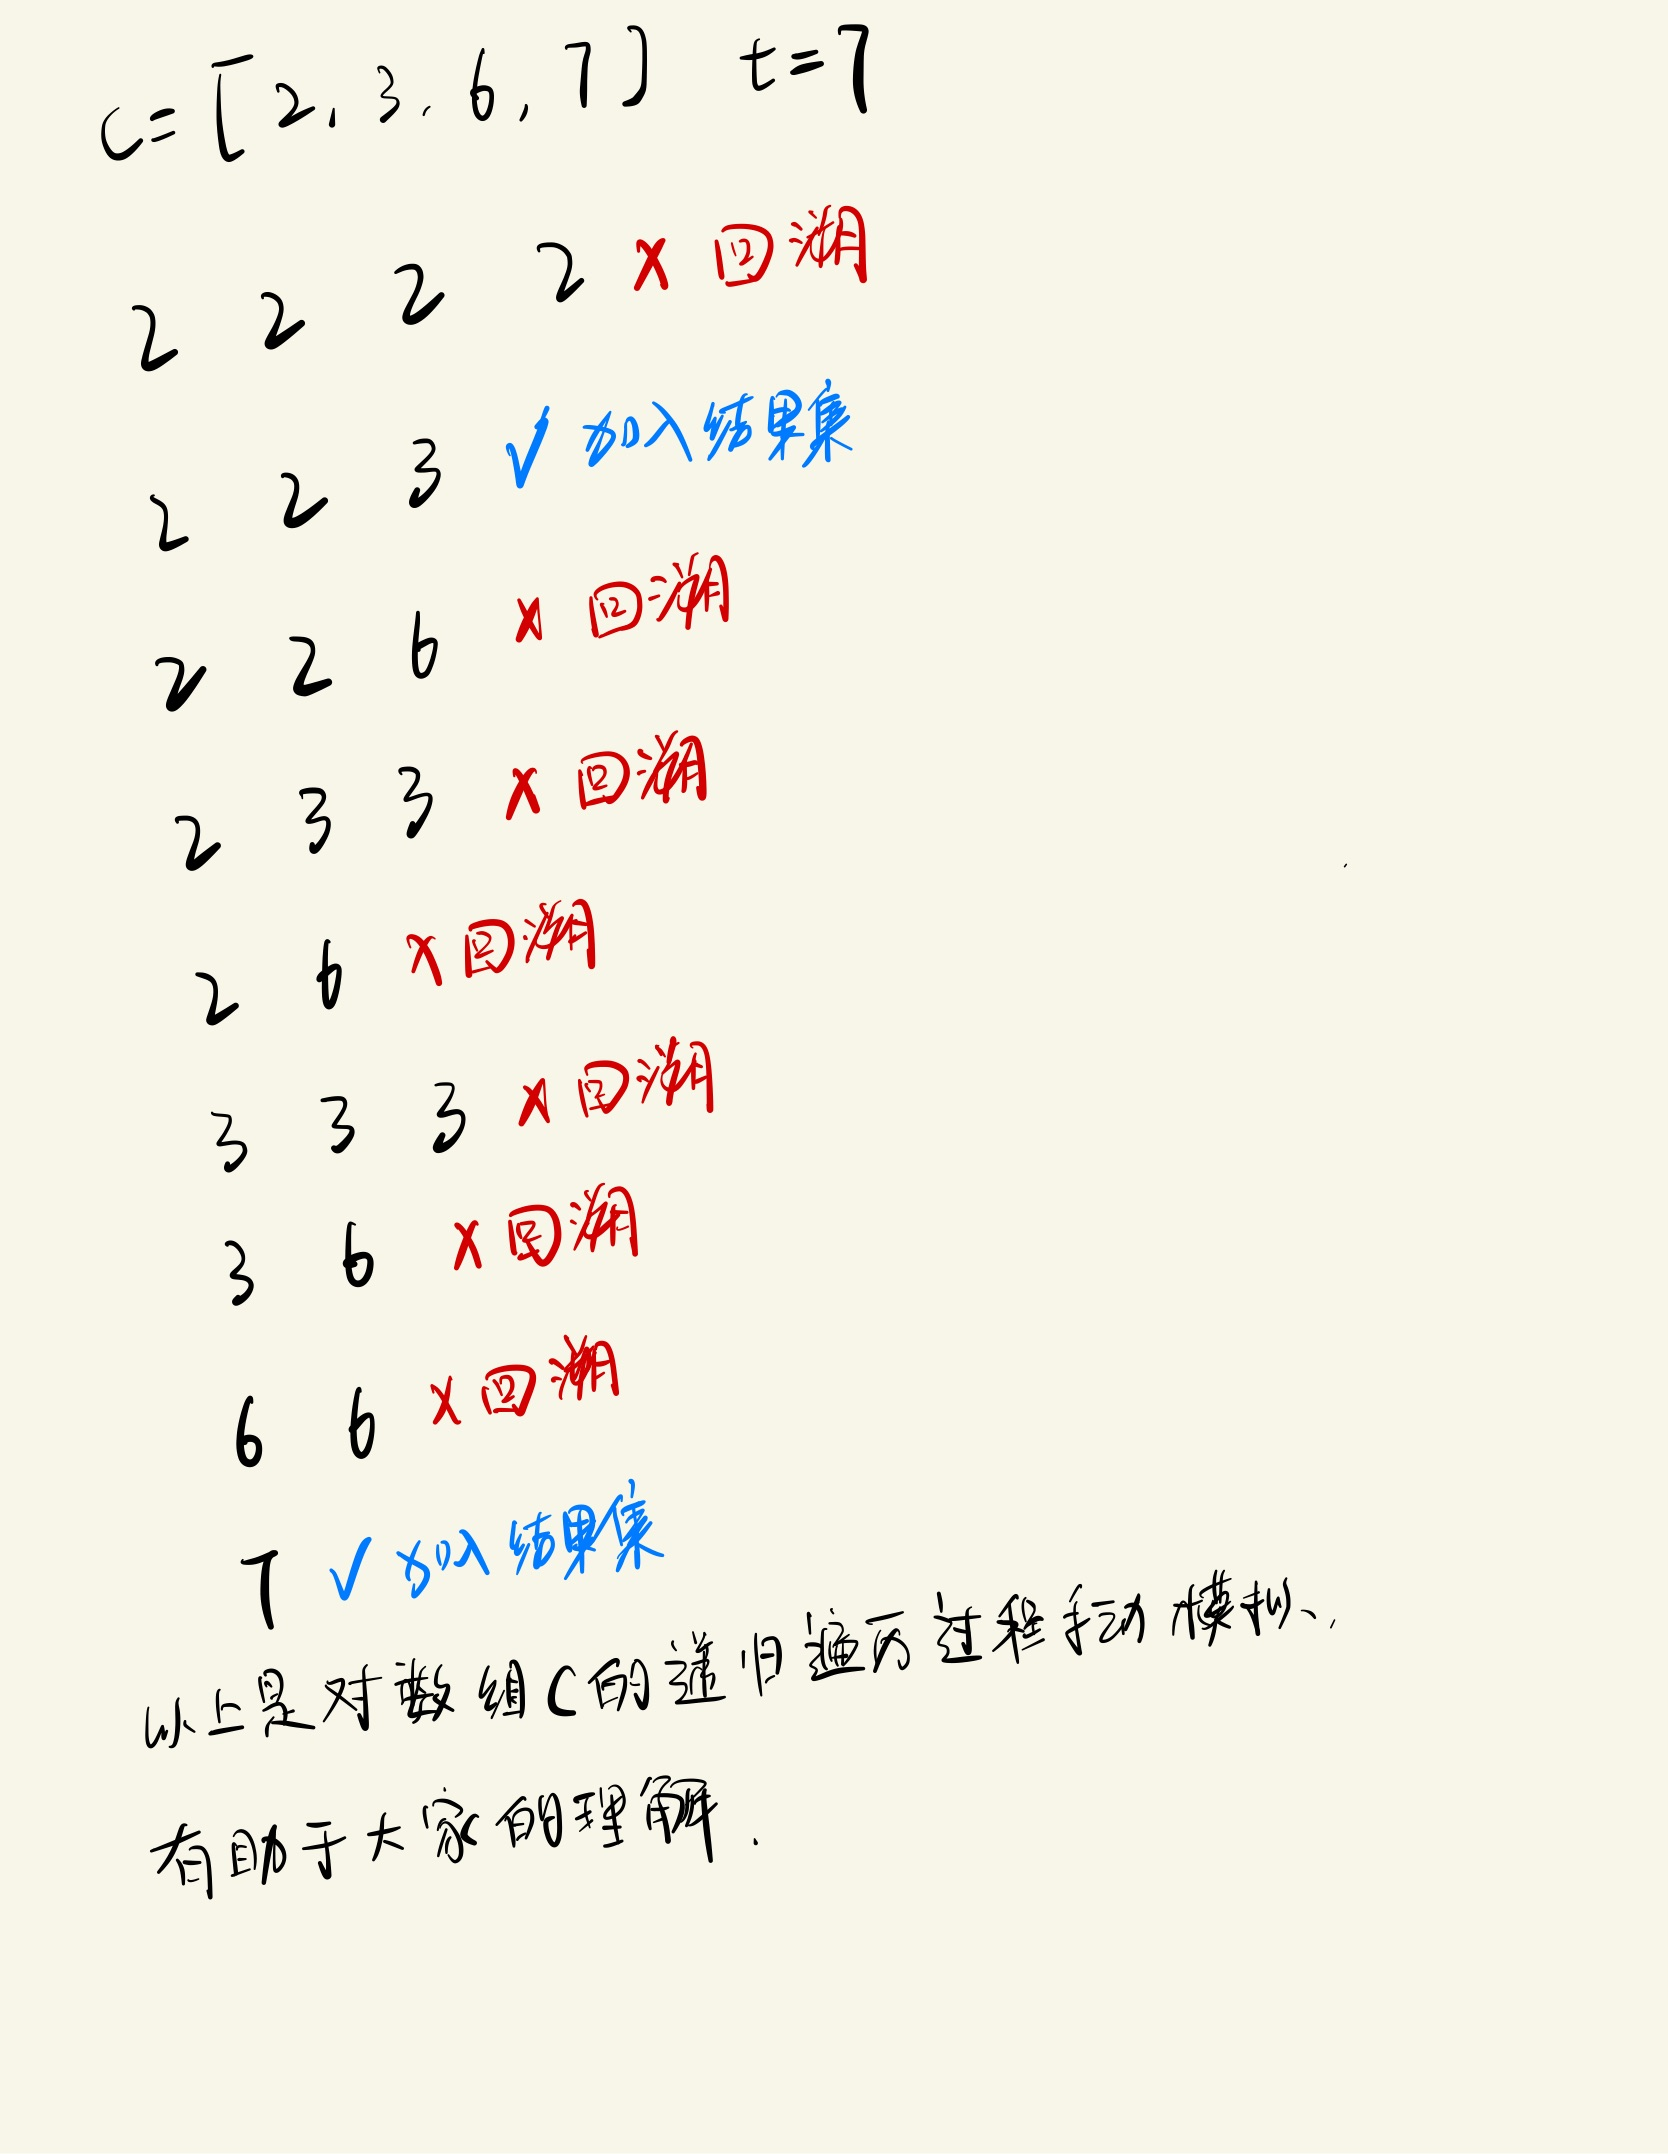 C=[2,3,6,7] t=7
2 2 2 2 × 回溯
2 2 3 ✓ 加入结果集
2 2 6 × 回溯
2 3 3 × 回溯
2 6 × 回溯
3 3 3 × 回溯
3 6 × 回溯
6 6 × 回溯
7 ✓ 加入结果集
以上是对数组C的递归遍历过程手动模拟、,
有助于大家的理解.